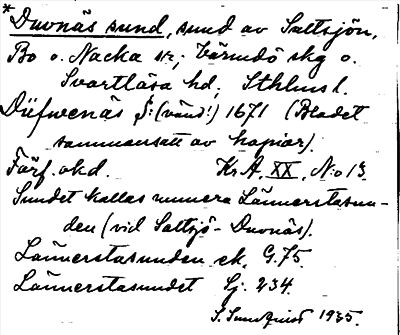 * Duvnäs sund, sund av Saltsjön,
Bo o. Nacka snr; Värmdö skg o.
Svartlösa hd, Sthlms l.
Düfwenäs S: (vänd!) 1671 (Bladet
sammansatt av kopior).
Förf. okd. Kr. A. XX, N:o 13.
Sundet kallas numera Lännerstasun-
den (vid Saltsjö-Duvnäs).
Lännerstasunden ek. G. 75.
Lännerstasundet Sj. 234.
S. Sundqvist 1935.